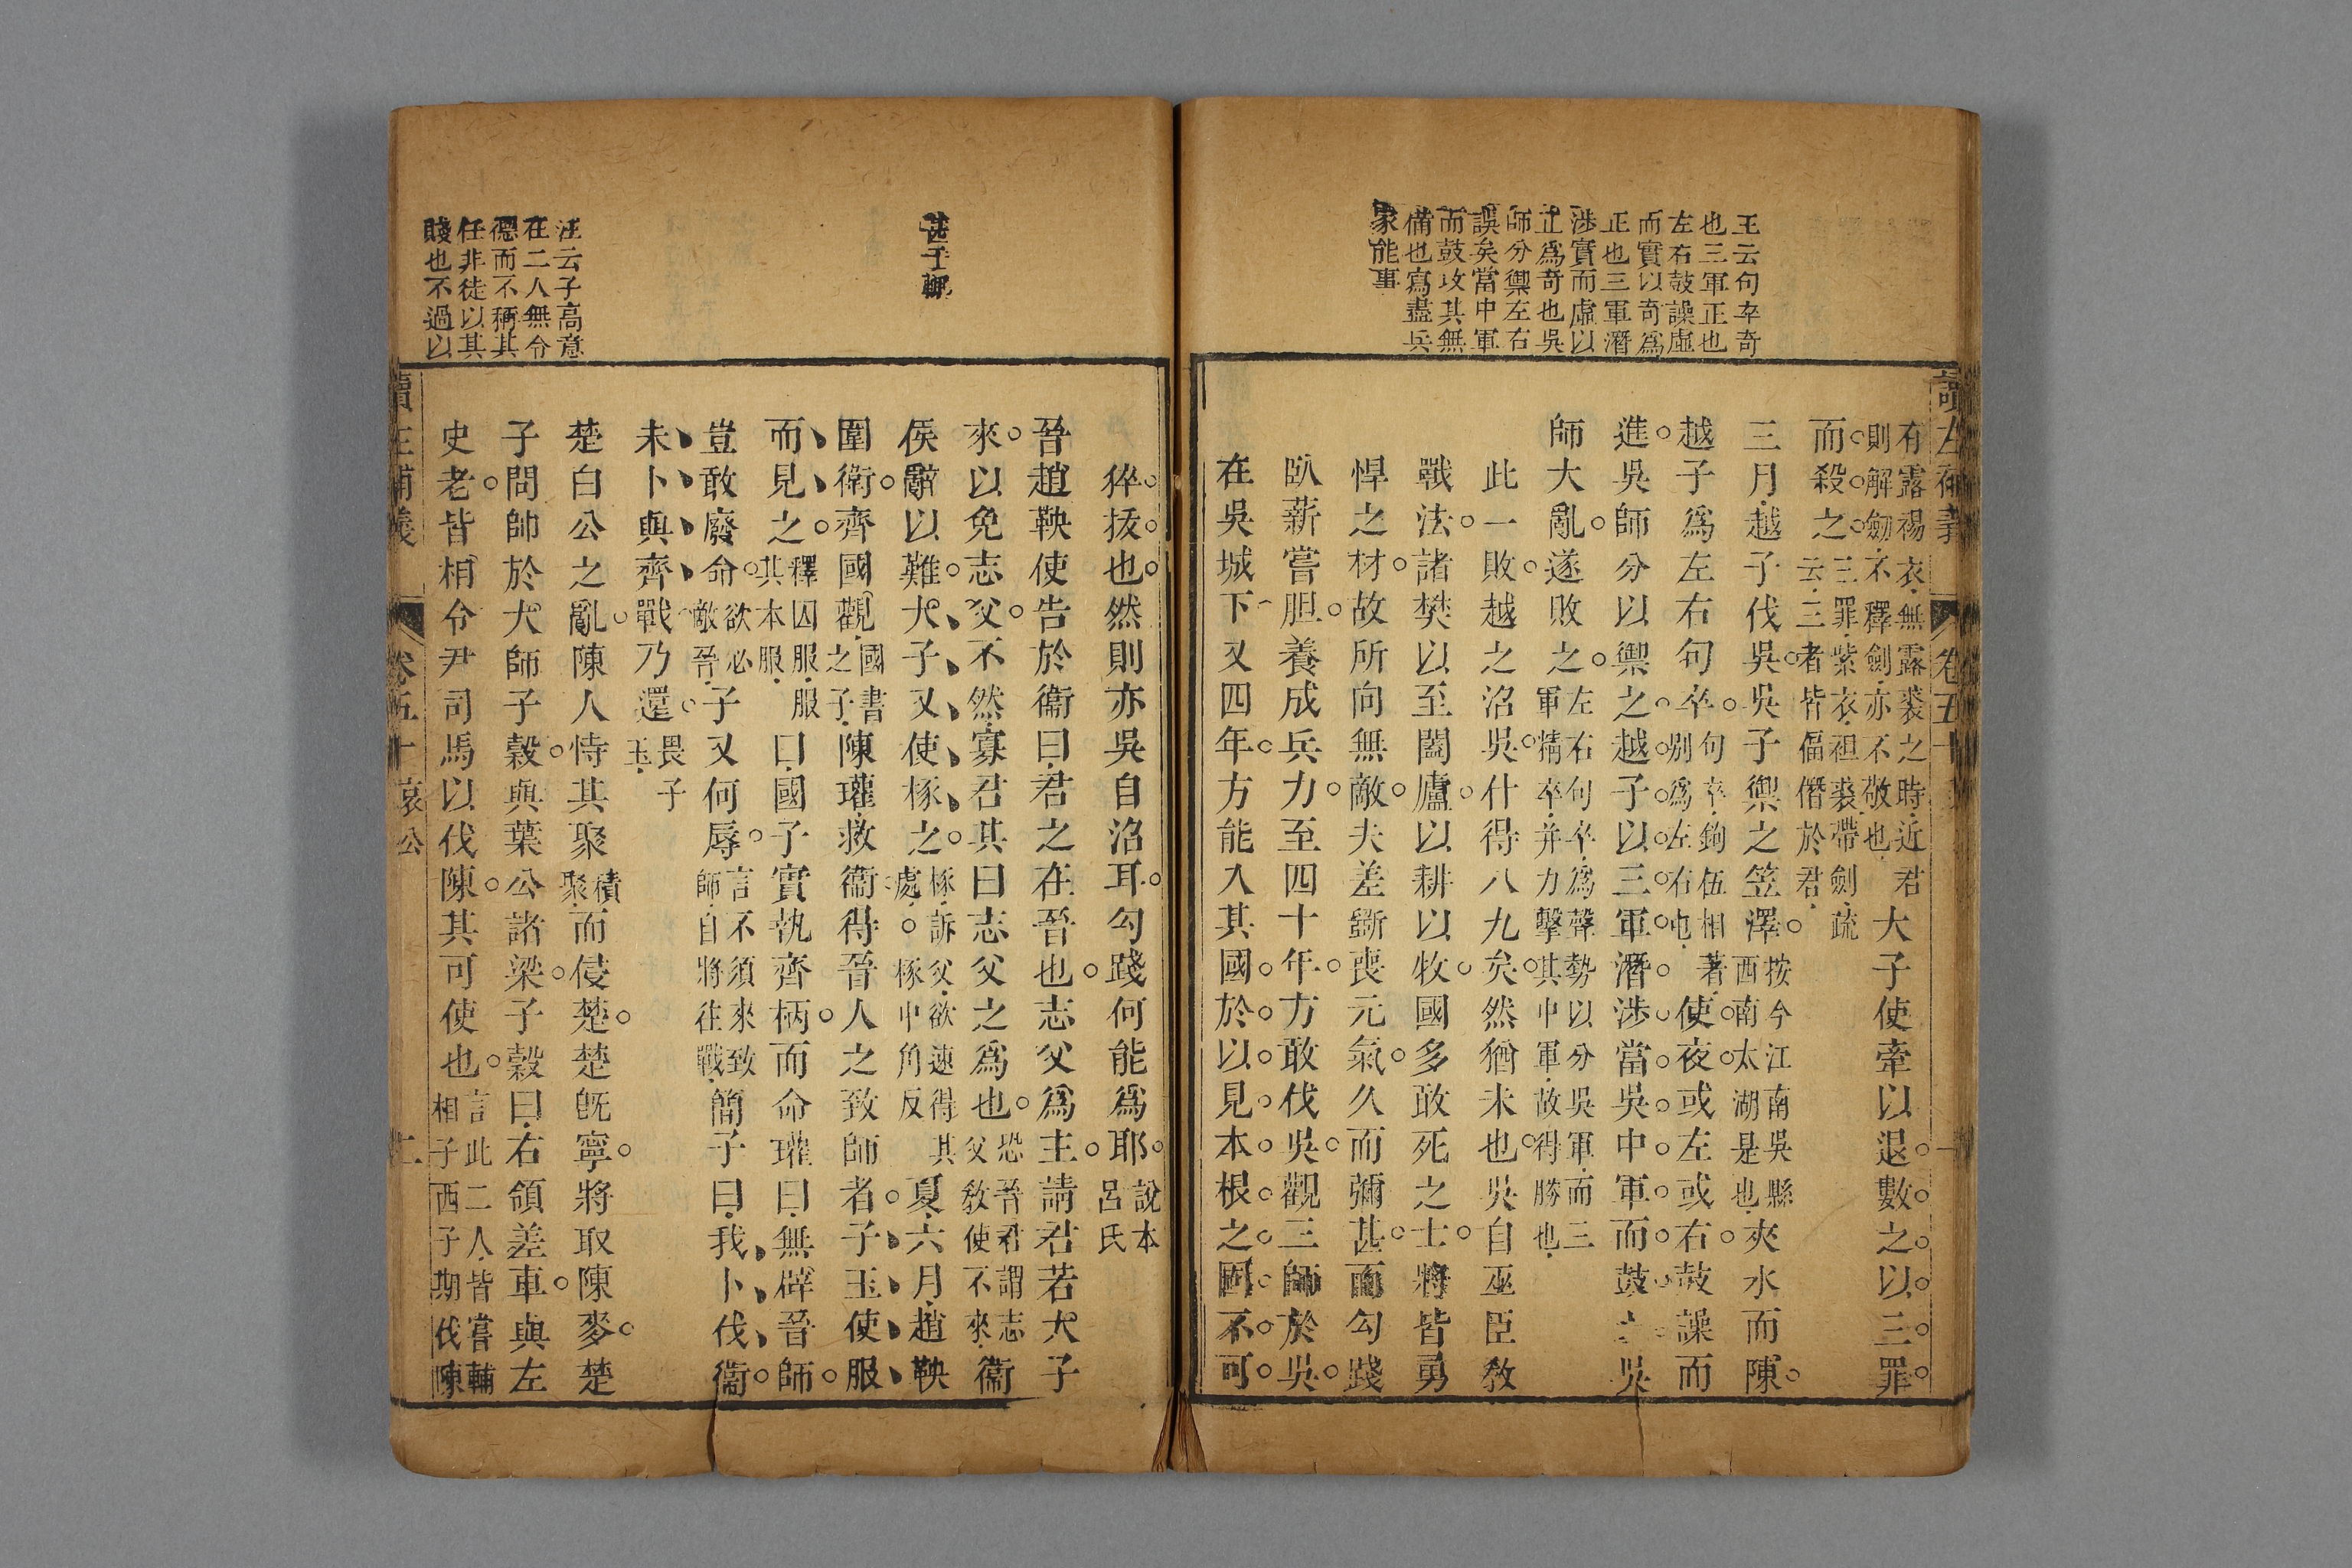 王云句卒奇
也三軍正也
左右鼓譟虛
而實以奇爲
正也三軍潛
涉實而虛以
正爲奇也吳
師分禦左右
誤矣當中軍
而鼓攻其無
備也寫盡兵
家能事
讀左補義 卷五十
有露裼衣無露裘之時近君
則解劒不釋劍亦不敬也
大子使牽以退數之以三罪
而殺之
三罪紫衣袒裘帶劍疏
云三者皆偪僭於君
三月越子伐吳吳子禦之笠澤
按今江南吳縣
西南太湖是也
夾水而陳
越子爲左右句卒
句卒鉤伍相著
別爲左右屯
使夜或左或右鼓譟而
進吳師分以禦之越子以三軍潛涉當吳中軍而鼓之吳
師大亂遂敗之
左右句卒爲聲勢以分吳軍而三
軍精卒并力擊其中軍故得勝也
此一敗越之沼吳什得八九矣然猶未也吳自巫臣敎
戰法諸樊以至闔廬以耕以牧國多敢死之士將皆勇
悍之材故所向無敵夫差斵喪元氣久而彌甚而勾踐
臥薪嘗胆養成兵力至四十年方敢伐吳觀三師於吳
在吳城下又四年方能入其國於以見本根之固不可
甚于聊
汪云子高意
在二人無令
德而不稱其
任非徒以其
賤也不過以
猝拔也然則亦吳自沼耳勾踐何能爲耶
說本
呂氏
晉趙鞅使告於衞曰君之在晉也志父爲主請君若大子
來以免志父不然寡君其曰志父之爲也
恐晉君謂志
父敎使不來
衞
侯辭以難大子又使椓之
椓訴父欲速得其
處○椓中角反
夏六月趙鞅
圍衛齊國觀
國書
之子
陳瓘救衞得晉人之致師者子玉使服
而見之
釋囚服服
其本服
曰國子實執齊柄而命瓘曰無辟晉師
豈敢廢命
欲必
敵晉
子又何辱
言不須來致
師自將往戰
簡子曰我卜伐衞
未卜與齊戰乃還
畏子
玉
楚白公之亂陳人恃其聚
積
聚
而侵楚楚旣寧將取陳麥楚
子問帥於大師子穀與葉公諸梁子穀曰右領差車與左
史老皆相令尹司馬以伐陳其可使也
言此二人皆嘗輔
相子西子期伐陳
讀左補義 卷五十哀公 二